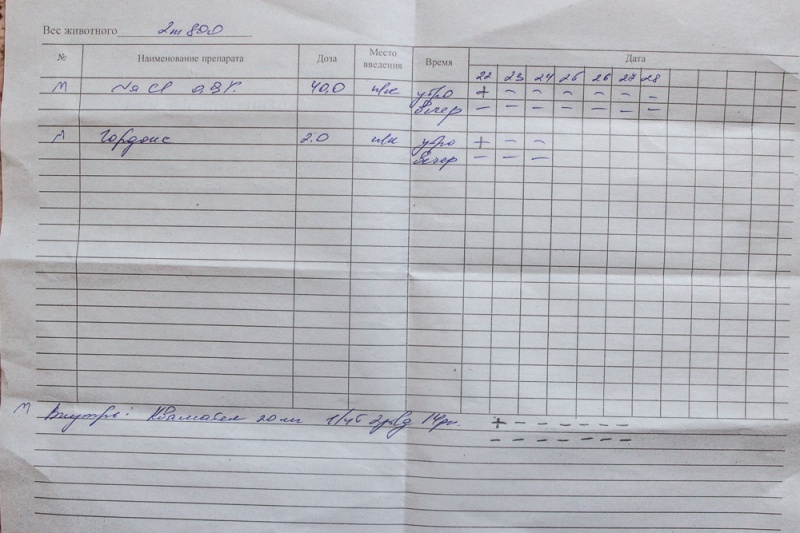 Вес животного 2кг 800
№ Наименование препарата Доза Место введения Время Дата
22 23 24 25 26 27 28
М Na Cl 0.9%. 40,0 п/к утро + – – – – – –
вечер – – – – – – –
М Гордокс 2.0 п/к утро + – –
вечер – – –
М Внутрь: Квамател 20 мг 1/4т 2рвд 14дн. + – – – – – –
– – – – – – –